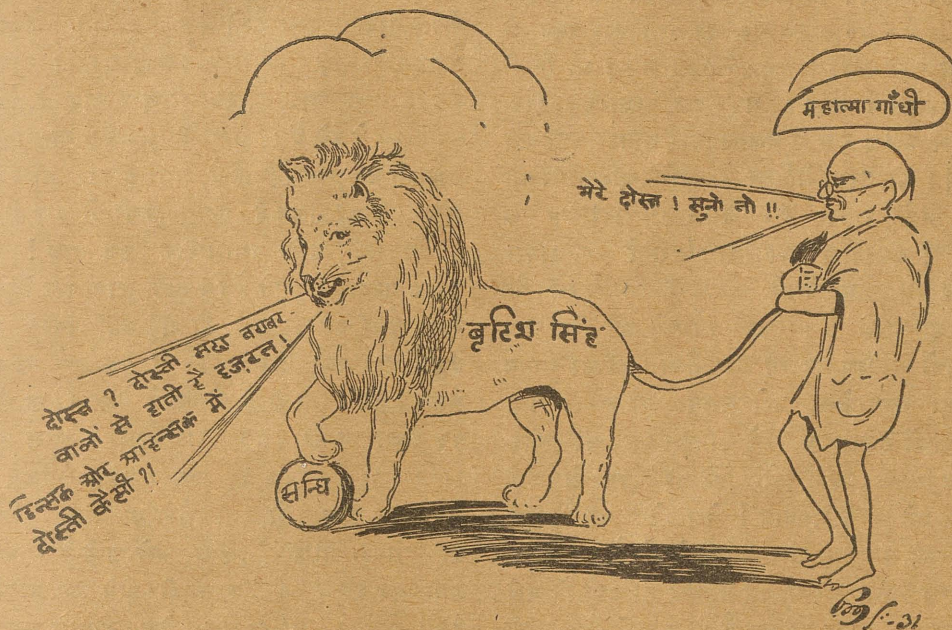 महात्मा गाँधी
मेरे दोस्त ! सुनो तो !!
बृटिश सिंह
दोस्त ? दोस्ती सदा बराबर
वालों से होती है हज़रत !
हिन्सक और अहिन्सक में
दोस्ती कैसी ?!
सन्धि